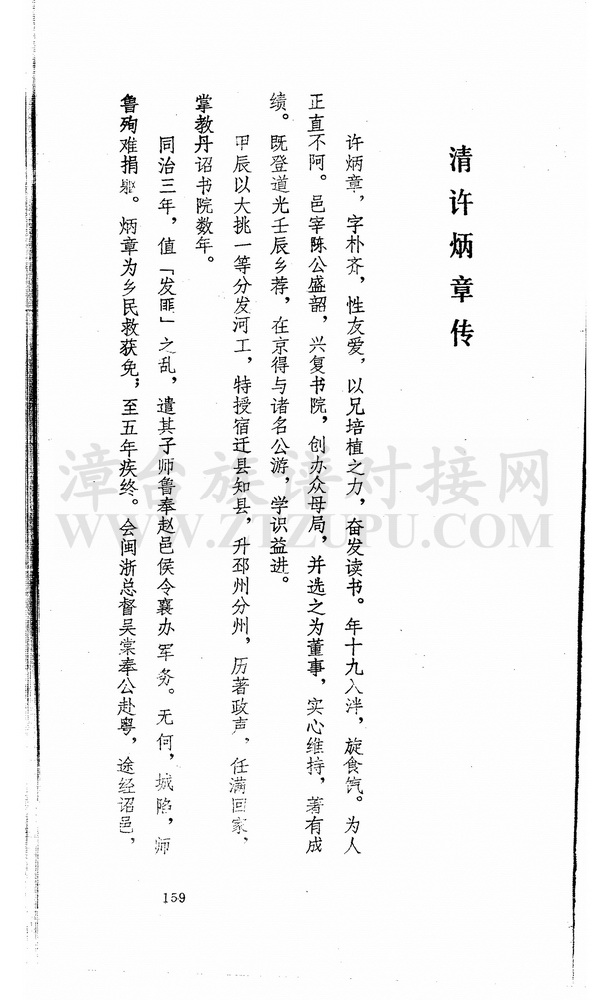 清许炳章传
许炳章，字朴齐，性友爱，以兄培植之力，奋发读书。年十九入泮，旋食饩。为人
正直不阿。邑宰陈公盛韶，兴复书院，创办众母局，并选之为董事，实心维持，著有成
绩。既登道光壬辰乡荐，在京得与诸名公游，学识益进。
甲辰以大挑一等分发河工，特授宿迁县知县，升邳州分州，历著政声，任满回家、
掌教丹诏书院数年。
同治三年，值「发匪」之乱，遣其子师鲁奉赵邑侯令襄办军务。无何，城陷，师
鲁殉难捐躯。炳章为乡民救获免；至五年疾终。会闽浙总督吴棠奉公赴粤，途经诏邑，
159
漳台族谱对接网
WWW.ZTZUPU.COM